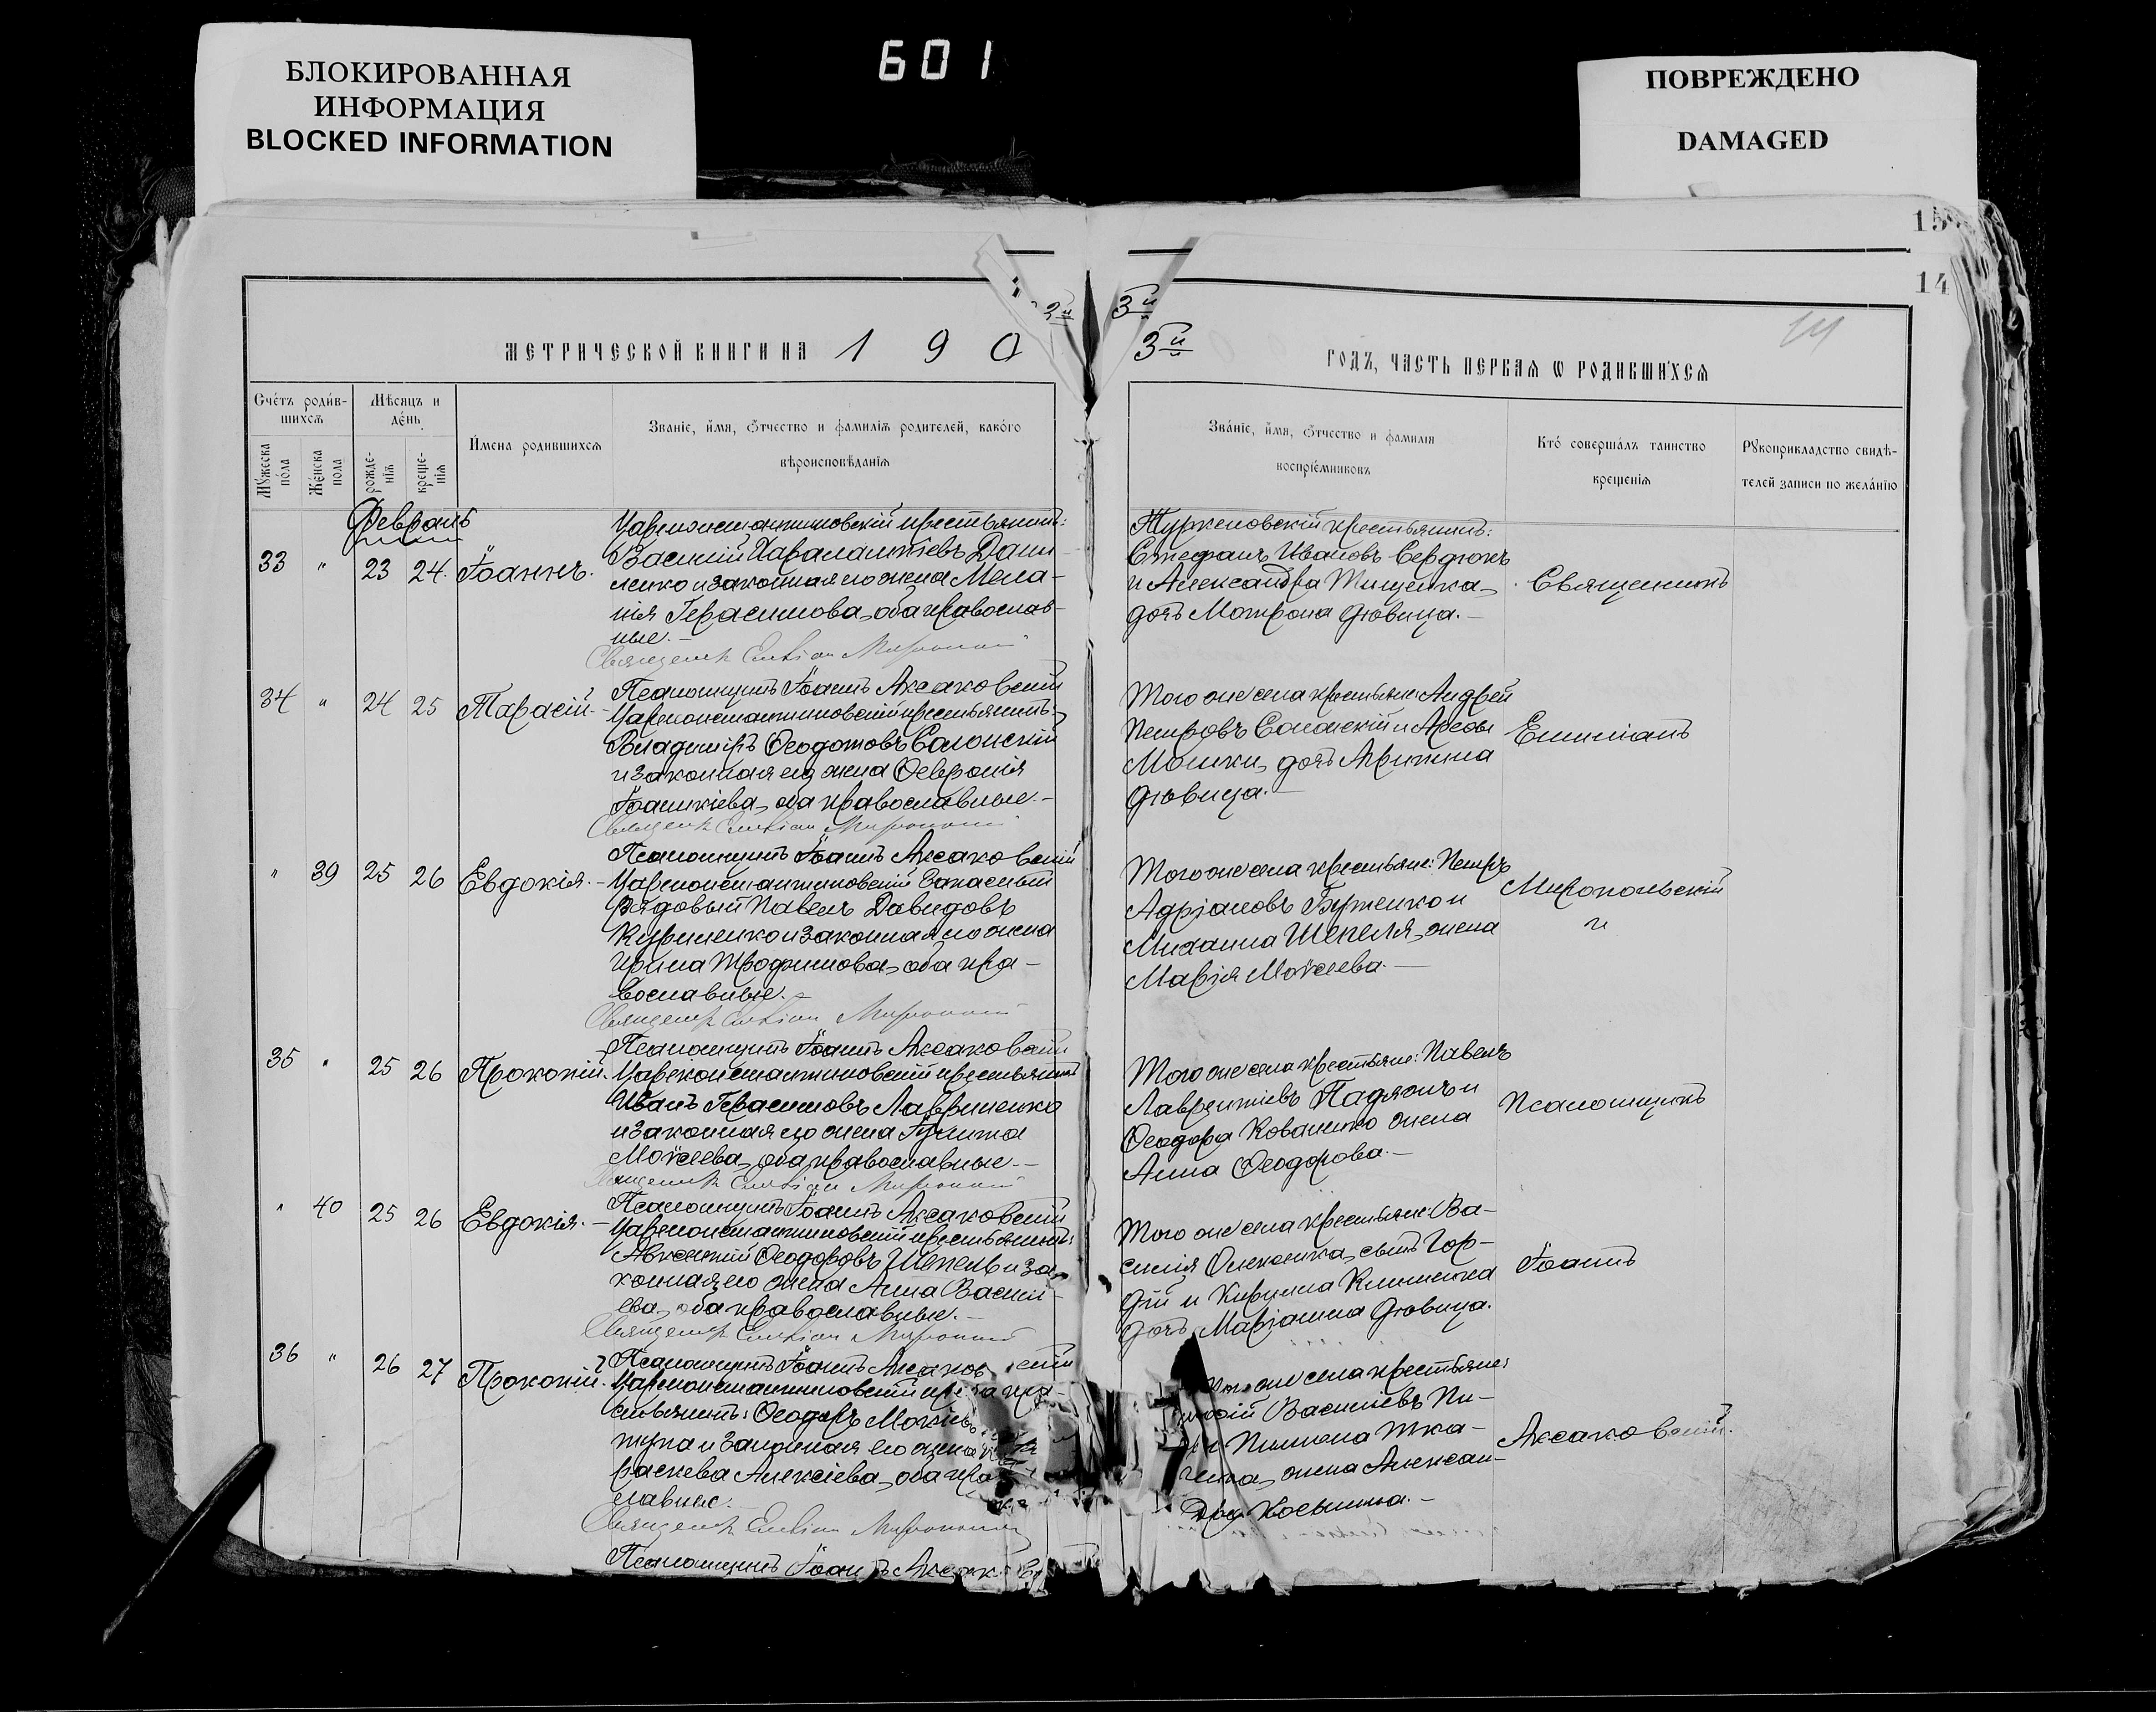 БЛОКИРОВАННАЯ
ИНФОРМАЦИЯ
BLOCKED INFORMATION
601
ПОВРЕЖДЕНО
DAMAGED
15
14
3й
МЕТРИЧЕСКОЙ КНИГИ НА 1 9 0
3й
ГОДЪ, ЧАСТЬ ПЕРВАЯ Ѡ РОДИВШИХСЯ
Счетъ родив-
шихся
Мужеска
пола
Женска
пола
Мѣсяцъ и
день
рожде-
нія
креще-
нія
Имена родившихся
Званіе, имя, отчество и фамилія родителей, какого
вѣроисповѣданія
Званіе, имя, отчество и фамилія
воспріемниковъ
Кто совершалъ таинство
крещенія
Рукоприкладство свидѣ-
телей записи по желанію
Февраль
33 " 23 24. Іоаннъ.
Цареконстантиновскій крестьянинъ:
Василій Харалампіевъ Дани
ленко и законная его жена Мела-
нія Герасимова, оба православ-
ные.-
Священник Емельян
Стефанъ Ивановъ Сердюкъ
и Александра Тищенка,
дочь Матрона дѣвица.-
Священникъ
34 " 24 25 Тарасій.-
Псаломщикъ Іоаннъ Аксаковскій
Цареконстантиновскій крестьянинъ:
Владиміръ Ѳеодотовъ Солонскій
и законная его жена Ѳеврония
Іоанникіева, оба православные.-
Священник Емельян
Того же села крестьяне: Андрей
Петровъ Солонскій и
дочь Агрипина
дѣвица.-
Емиліанъ
" 39 25 26 Евдокія.-
Псаломщикъ Іоаннъ Аксаковскій
Цареконстантиновскій запасный
рядовый Павелъ Давидовъ
Куриленко и законная его жена
Ирина Трофимова, оба пра-
вославные.-
Священник Емельян
Того же села крестьяне: Петръ
Адріановъ Бутенко и
Михаила Шепеля, жена
Марія Моисеева.-
Миропольскій
и
35 " 25 26 Прокопій.
Псаломщикъ Іоаннъ Аксаковскій
Цареконстантиновскій крестьянинъ
Иванъ Герасимовъ Лавриненко
и законная его жена
Моисеева, оба православные.-
Священник Емельян
Того же села крестьяне: Павелъ
Лаврентіевъ и
Ѳеодора Коваленко жена
Анна Ѳеодорова.-
Псаломщикъ
" 40 25 26 Евдокія.-
Псаломщикъ Іоаннъ Аксаковскій
Цареконстантиновскій крестьянинъ:
Авксентій Ѳеодоровъ Шепель и за-
конная его жена Анна Васил-
ева, оба православные.-
Священник Емельян
Того же села крестьяне: Ва-
силія Олексенка, сынъ Гор-
дій и Кирилла Клименка
дочь Маріанна дѣвица.
Іоаннъ
36 " 26 27 Прокопій.
Псаломщикъ Іоаннъ Аксаковскій
Цареконстантиновскій кре-
стьянинъ: Ѳеодоръ
и законная его жена
раскева Алексіева, оба пра
славные.-
Священник Емельян
же села крестьяне:
Василіевъ Пи-
Пимена Тка-
ченка, жена Алексан-
дра Косьмина.-
Аксаковскій.
Псаломщикъ Іоаннъ